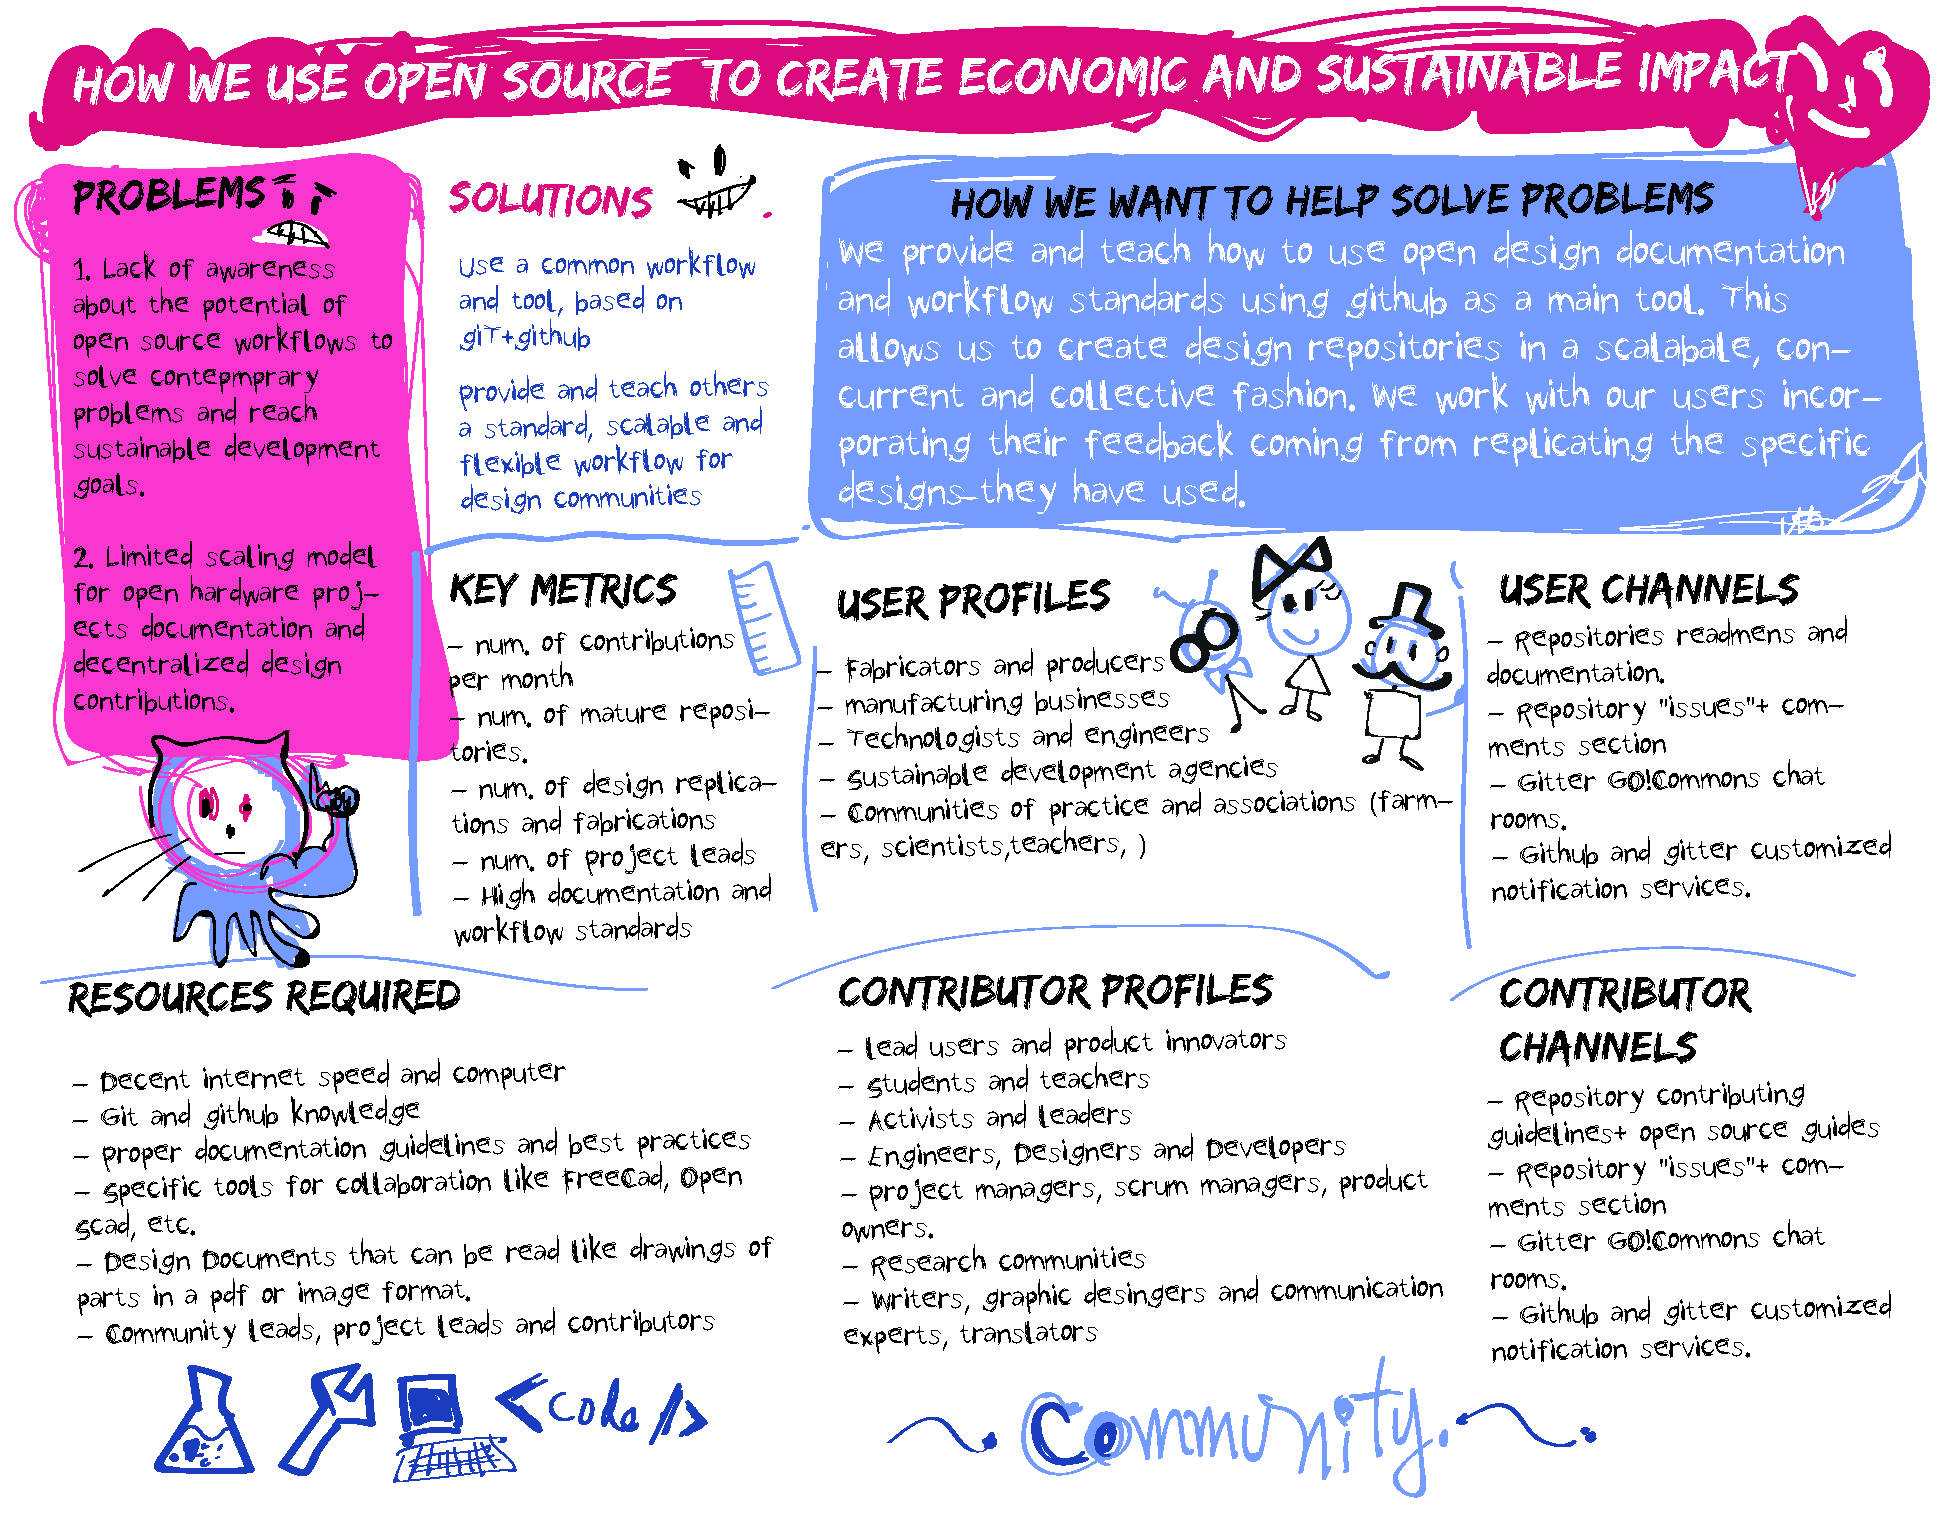 HOW WE USE OPEN SOURCE TO CREATE ECONOMIC AND SUSTAINABLE IMPACT
PROBLEMS
1. Lack of awareness
about the potential of
open source workflows to
solve contepmprary
problems and reach
sustainable development
goals.
2. Limited scaling model
for open hardware proj-
ects documentation and
decentralized design
contributions.
SOLUTIONS
Use a common workflow
and tool, based on
giT+github
provide and teach others
a standard, scalable and
flexible workflow for
design communities
HOW WE WANT TO HELP SOLVE PROBLEMS
We provide and teach how to use open design documentation
and workflow standards using github as a main tool. This
allows us to create design repositories in a scalabale, con-
current and collective fashion. We work with our users incor-
porating their feedback coming from replicating the specific
designs they have used.
KEY METRICS
- num. of contributions
per month
- num. of mature reposi-
tories.
- num. of design replica-
tions and fabrications
- num. of project leads
- High documentation and
workflow standards
USER PROFILES
- Fabricators and producers
- manufacturing businesses
- Technologists and engineers
- Sustainable development agencies
- Communities of practice and associations (farm-
ers, scientists,teachers, )
USER CHANNELS
- Repositories readmens and
documentation.
- Repository "issues"+ com-
ments section
- Gitter GO!Commons chat
rooms.
- Github and gitter customized
notification services.
RESOURCES REQUIRED
- Decent internet speed and computer
- Git and github knowledge
- proper documentation guidelines and best practices
- Specific tools for collaboration like FreeCad, Open
Scad, etc.
- Design Documents that can be read like drawings of
parts in a pdf or image format.
- Community leads, project leads and contributors
CONTRIBUTOR PROFILES
- Lead users and product innovators
- Students and teachers
- Activists and leaders
- Engineers, Designers and Developers
- project managers, scrum managers, product
owners.
- Research communities
- Writers, graphic desingers and communication
experts, translators
CONTRIBUTOR
CHANNELS
- Repository contributing
guidelines+ open source guides
- Repository "issues"+ com-
ments section
- Gitter GO!Commons chat
rooms.
- Github and gitter customized
notification services.
<code/>
Community.